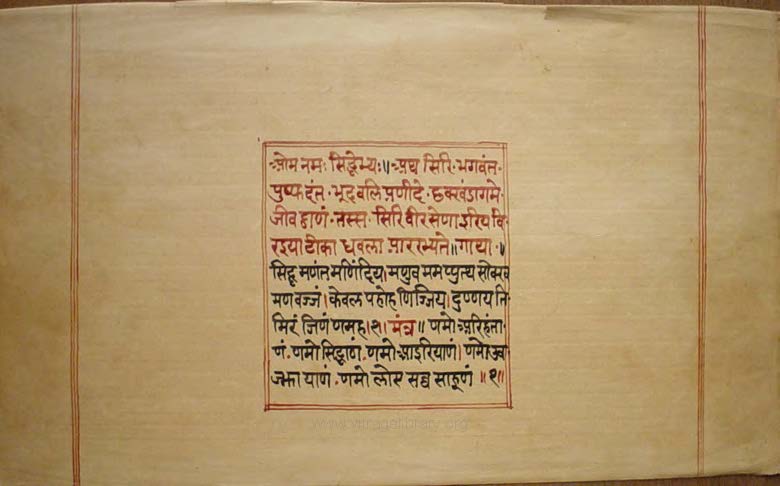 ओम नमः सिद्धेभ्यः॥ अथ सिरि भगवंत-
पुप्फदंत-भूदवलि पणीदे छक्खंडागमे-
जीवट्ठाणं-तस्स-सिरि वीरसेणाइरिय वि-
रइया टीका धवला प्रारभ्यते॥ गाथा॥
सिद्धमणंतमणिंदिय मणुवममप्पुत्थ सोक्ख
मणवज्जं। केवल पहोह णिज्जिय। दुण्णय ति-
मिरं जिणं णमह।१। मंत्र॥ णमो अरिहंता-
णं-णमो सिद्धाणं-णमो आइरियाणं। णमो उव-
ज्झायाणं-णमो लोए सव्व साहूणं॥१॥
www.vitragelibrary.org